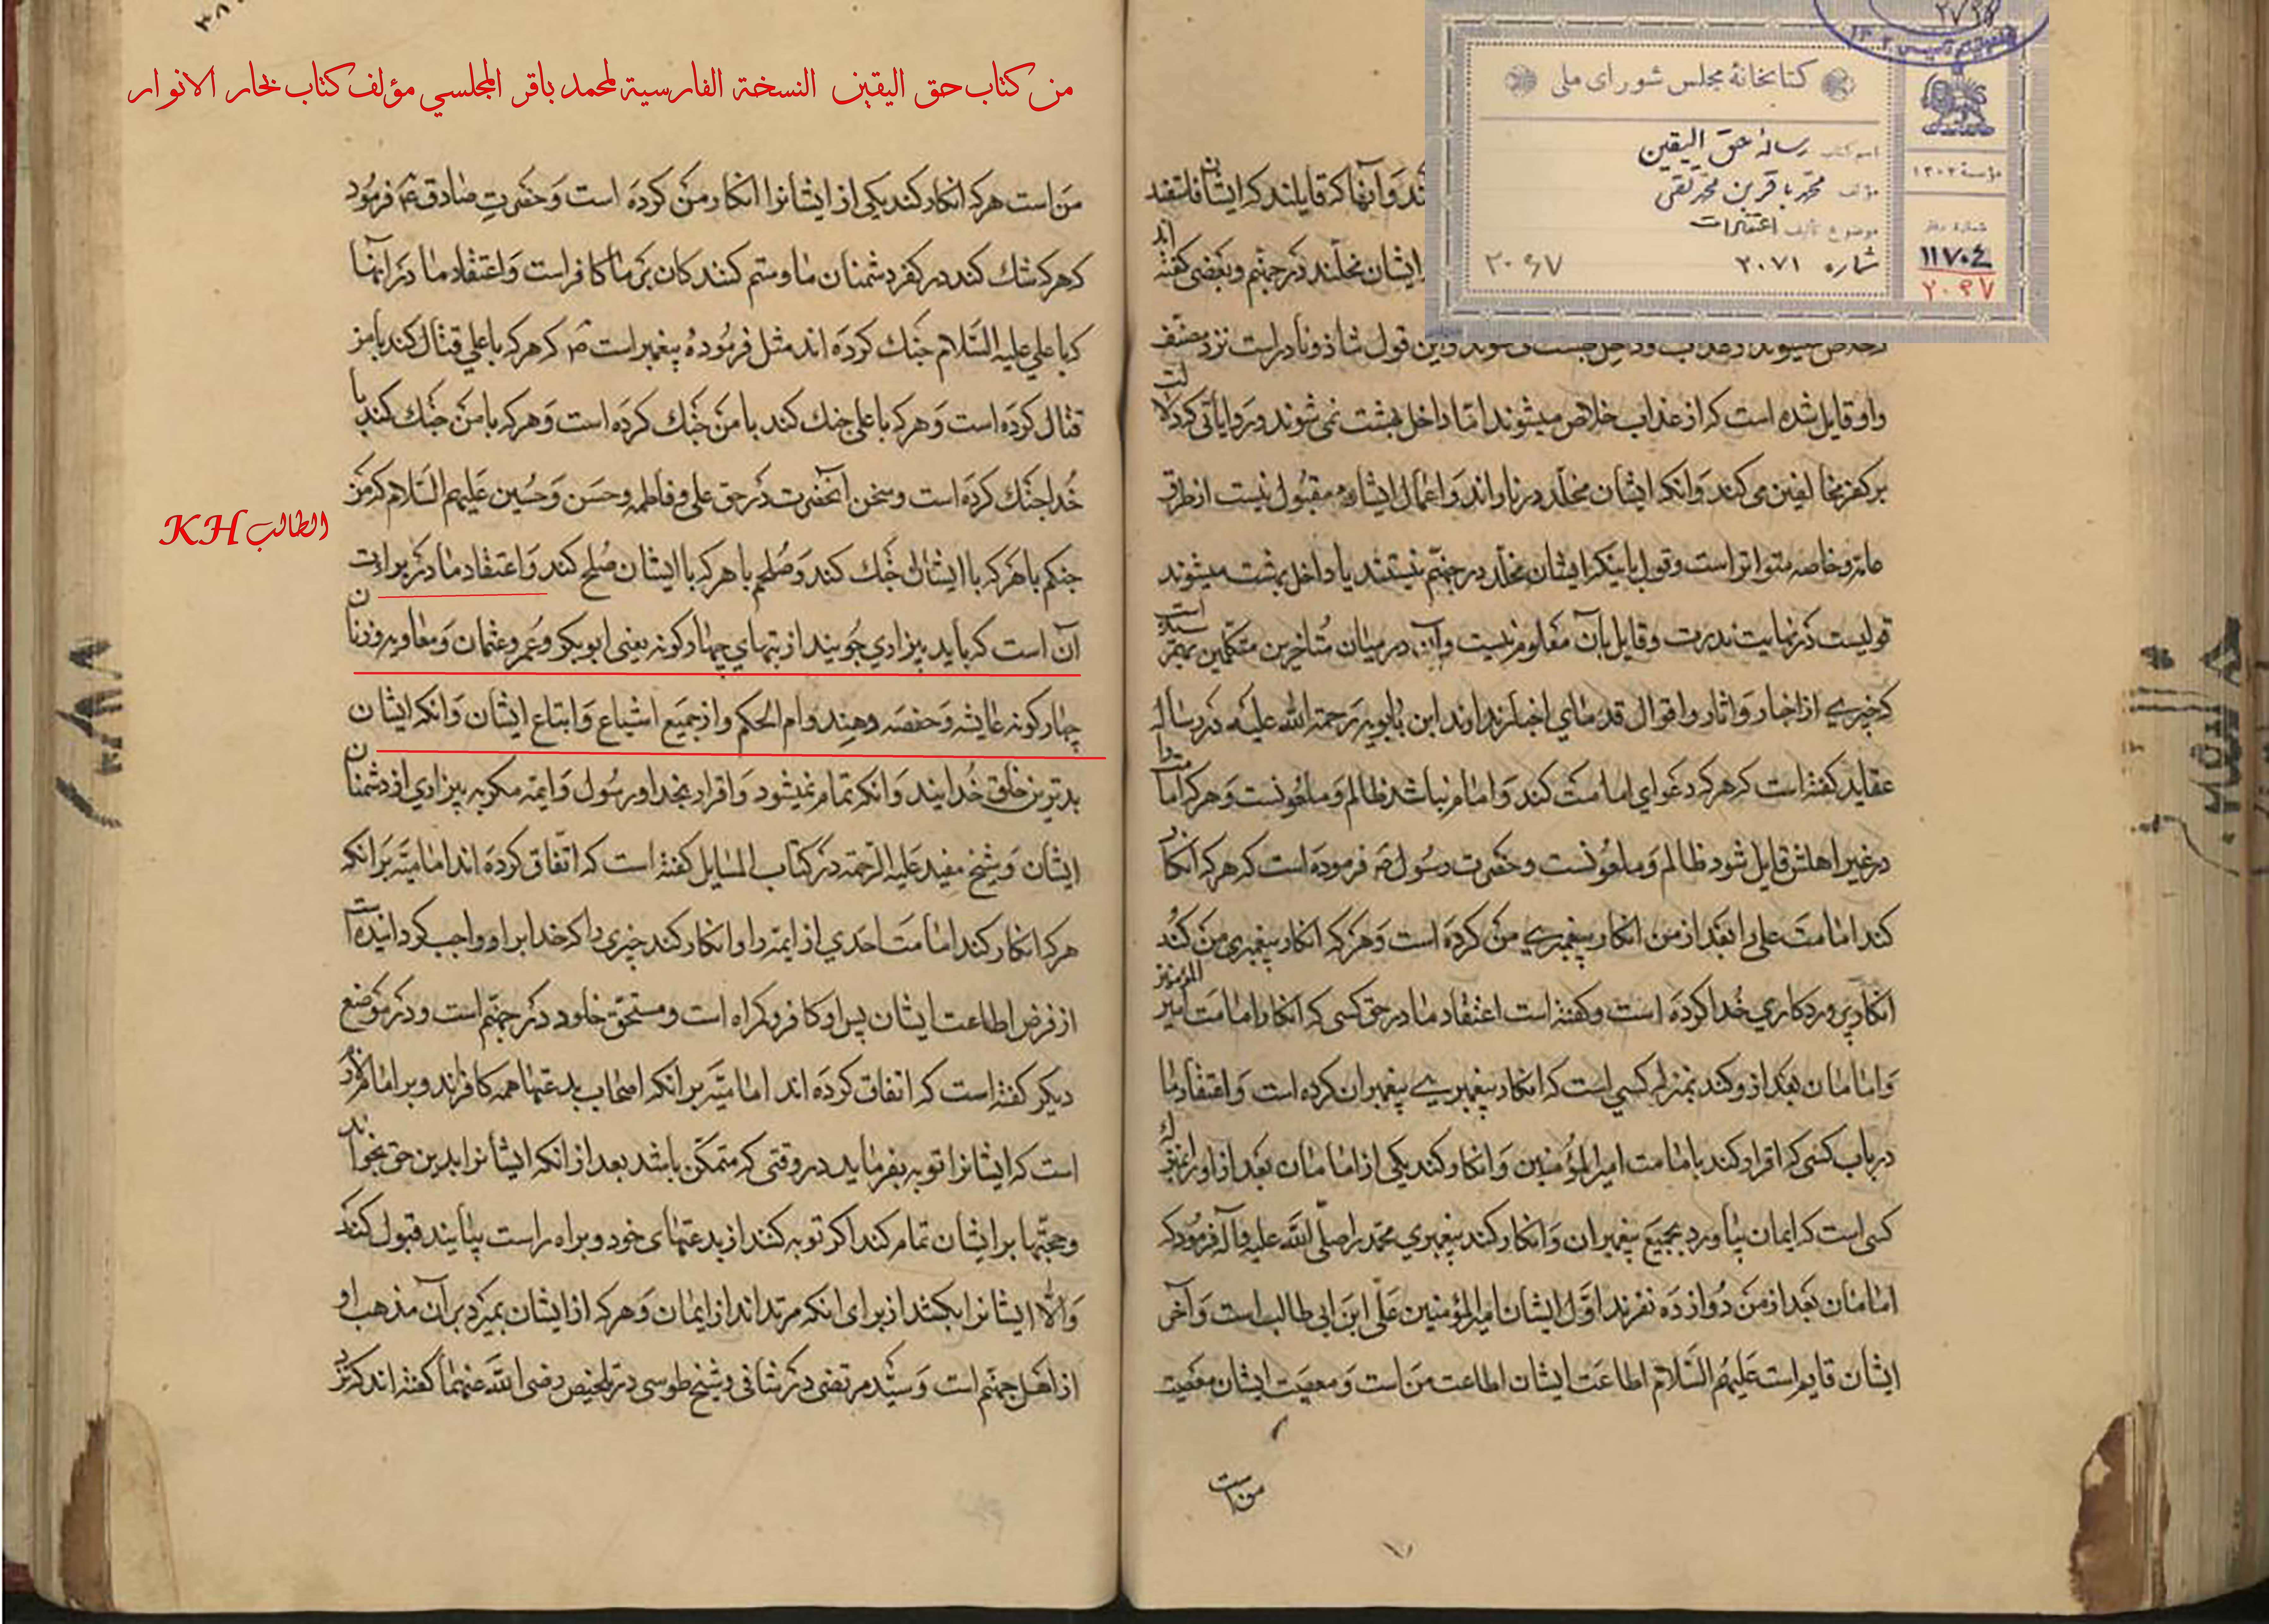 من كتاب حق اليقين النسخة الفارسية لمحمد باقر المجلسي مؤلف كتاب بحار الانوار
كتابخانهٔ مجلس شورای ملی
اسم کتاب رساله حق الیقین
مؤلف محمد باقر بن محمد تقی
موضوع تألیف اعتقادات
شماره ۲۰۷۱
۲۰۹۷
مؤسسهٔ ۱۳۰۲
شماره دفتر
۱۱۷۰٤
۲۰۹۷
کنند و آنها که قایلند که ایشان فاسقند
ایشان مخلدند در جهنم و بعضی گفته اند
خلاص میشوند و این قول شاذ و نادر است نزد مصنف
و او قایل شده است که از عذاب خلاص میشوند اما داخل بهشت نمی شوند و روایاتی که دلالت
بر کفر مخالفین می کند و انکه ایشان مخلد در نار اند و اعمال ایشان مقبول نیست از طرق
عامه و خاصه متواتر است و قول باینکه ایشان مخلد در جهنم نیستند یا داخل بهشت میشوند
قولیست در نهایت ندرت و قایل بآن معلوم نیست و آن در میان متاخرین متکلمین
که خبری از اخبار و اثار و اقوال قدمای اخبار ندارند ابن بابویه رحمة الله علیه در رساله
عقاید گفته است که هر که دعوای امامت کند و امام نباشد ظالم و ملعونست و هر که امامت را
در غیر اهلش قایل شود ظالم و ملعونست و حضرت رسول ص فرموده است که هر که انکار
کند امامت علی را بعد از من انکار پیغمبری من کرده است و هر که انکار پیغمبری من کند
انکار پروردکاری خدا کرده است و گفته است اعتقاد ما در حق کسی که انکار امامت امیر المؤمنین
و امامان بعد از او کند بمنزله کسی است که انکار پیغمبری پیغمبران کرده است و اعتقاد ما
در باب کسی که اقرار کند بامامت امیر المؤمنین و انکار کند یکی از امامان بعد از او را
کسی است که ایمان بیاورد بجمیع پیغمبران و انکار کند پیغمبری محمد را صلی الله علیه و آله فرمود که
امامان بعد از من دوازده نفرند اول ایشان امیر المؤمنین علی ابن ابی طالب است و آخر
ایشان قایم است علیهم السلام اطاعت ایشان اطاعت من است و معصیت ایشان معصیت
من است
من است هر که انکار کند یکی از ایشانرا انکار من کرده است و حضرت صادق ع فرمود
که هر که شک کند در کفر دشمنان ما و ستم کنندکان بر ما کافر است و اعتقاد ما در آنها
که با علی علیه السلام جنک کرده اند مثل فرموده پیغمبر است ص که هر که با علی قتال کند با من
قتال کرده است و هر که با علی جنک کند با من جنک کرده است و هر که با من جنک کند با
خدا جنک کرده است و سخن انحضرت در حق علی و فاطمه و حسن و حسین علیهم السلام که من
الطالب KH
جنکم با هر که با ایشان جنک کند و صلحم با هر که با ایشان صلح کند و اعتقاد ما در براءت
آن است که باید بیزاری جویند از بتهای چهارکونه یعنی ابوبکر و عمر و عثمان و معاویه و زنان
چهارکونه عایشه و حفصه و هند و ام الحکم و از جمیع اشیاع و اتباع ایشان و انکه ایشان
بدترین خلق خدایند و انکه تمام نمیشود و اقرار بخدا و رسول و ایمه مکر به بیزاری از دشمنان
ایشان و شیخ مفید علیه الرحمة در کتاب المسایل کفته است که اتفاق کرده اند امامیه بر انکه
هر که انکار کند امامت احدی از ایمه را و انکار کند چیزی را که خدا بر او واجب کردانیده است
از فرض اطاعت ایشان پس او کافر و کمراه است و مستحق خلود در جهنم است و در موضع
دیکر کفته است که اتفاق کرده اند امامیه بر انکه اصحاب بدعتها همه کافرند و بر امام لازم
است که ایشانرا توبه بفرماید در وقتی که متمکن باشد بعد از انکه ایشانرا بدین حق بخواند
و حجتها بر ایشان تمام کند اکر توبه کنند از بدعتهای خود و براه راست بیایند قبول کند
و الا ایشانرا بکشد از برای انکه مرتد اند از ایمان و هر که از ایشان بمیرد بر آن مذهب او
از اهل جهنم است و سید مرتضی در شافی و شیخ طوسی در تلخیص رضی الله عنهما کفته اند که نزد